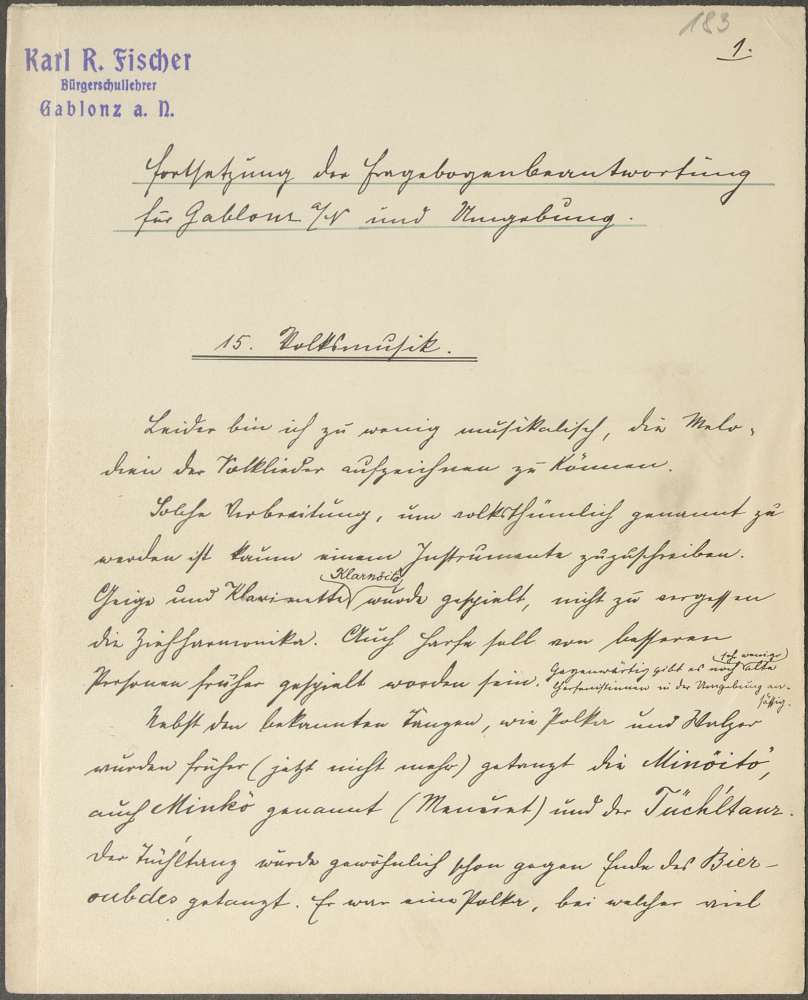 183
1.
Karl R. Fischer
Bürgerschullehrer
Gablonz a. N.
Fortsetzung der Fragebogenbeantwortung
für Gablonz a/N und Umgebung.
15. Volksmusik.
Leider bin ich zu wenig musikalisch, die Melo-
dien der Volklieder aufzeichnen zu können.
Solche Verbreitung, um volksthümlich genannt zu
werden ist kaum einem Instrumente zuzuschreiben.
(Klarnöitö)
Geige und Klarinette wurde gespielt, nicht zu vergessen
die Ziehharmonika. Auch Harfe soll von besseren
Personen früher gespielt worden sein. Gegenwärtig gibt es noch (sehr wenige) alte
Harfenistinnen in der Umgebung an-
säßig.
Nebst den bekannten Tänzen, wie Polka und Walzer
wurden früher (jetzt nicht mehr) getanzt die Minöitö,
auch Minkö genannt (Menuet) und der Tüchltanz.
Der Tüchltanz wurde gewöhnlich schon gegen Ende des Bier-
oubdes getanzt. Er war eine Polka, bei welcher viel